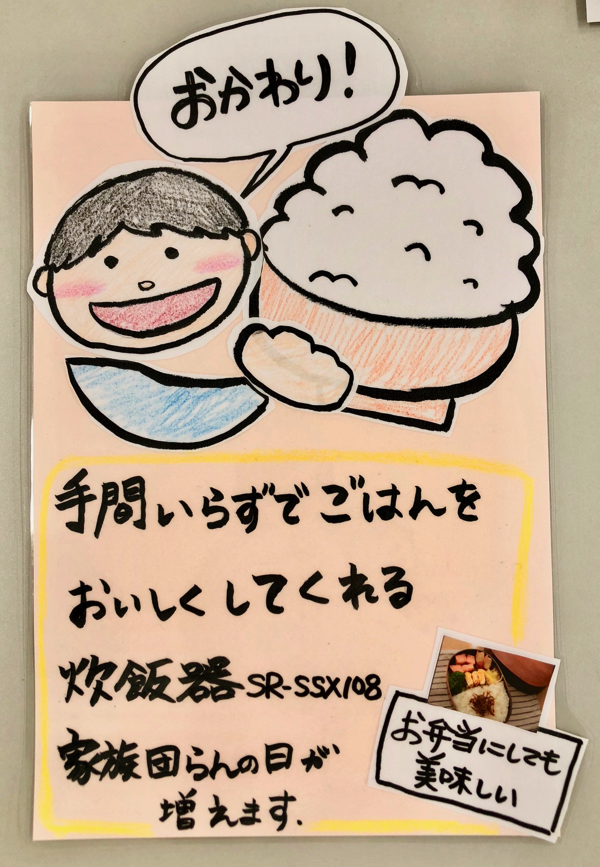 おかわり！
手間いらずでごはんを
おいしくしてくれる
炊飯器 SR-SSX108
家族団らんの日が
増えます.
お弁当にしても
美味しい